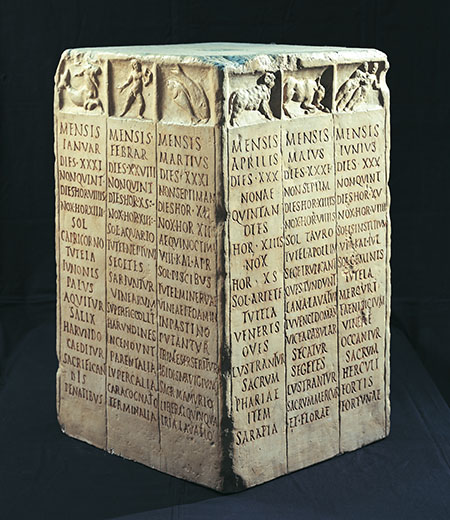 MENSIS
IANVAR
DIES·XXXI
NON·QVINT
DIES·HOR·VIIII
NOX·HOR·XIIII
SOL
CAPRICORNO
TVTELA
IVNONIS
PALVS
AQVITVR
SALIX
HARVNDO
CAEDITVR
SACRIFICAN
DIS
PENATIBVS
MENSIS
FEBRAR
DIES·XXVIII
NON·QVINT
DIES·HOR·X·S
NOX·HOR·XIII·S
SOL·AQVARIO
TVTEL·NEPTVNI
SEGETES
SARIVNTVR
VINEARVM
SVPERFIC·COLIT
HARVNDINES
INCENDVNT
PARENTALIA
LVPERCALIA
CARA·COGNATIO
TERMINALIA
MENSIS
MARTIVS
DIES·XXXI
NON·SEPTIMAN
DIES·HOR·XII
NOX·HOR·XII
AEQVINOCTIVM
VIII·KAL·APR
SOL·PISCIBVS
TVTEL·MINERVAE
VINEAE·PEDAMIN
IN·PASTINO
PVTANTVR
TRIMESTR·SERITVR
ISIDIS·NAVIGIVM
SACR·MAMVRIO
LIBERAL·QVINQVA
TRIA·LAVATIO
MENSIS
APRILIS
DIES·XXX
NONAE
QVINTAN
DIES
HOR·XIIIS
NOX
HOR·XS
SOL·ARIETE
TVTELA
VENERIS
OVES
LVSTRANTVR
SACRVM
PHARIAE
ITEM
SARAPIA
MENSIS
MAIVS
DIES·XXXI
NON·SEPTIM
DIES·HOR·XIIIIS
NOX·HOR·VIIIIS
SOL·TAVRO
TVTEL·APOLLIN
SEGET·RVNCANT
OVES·TONDENT
LANA·LAVATVR
IVVENCI·DOMANT
VICEA·PABVLAR
SECATVR
SEGETES
LVSTRANTVR
SACRVM·MERCVR
ET·FLORAE
MENSIS
IVNIVS
DIES·XXX
NON·QVINT
DIES·HOR·XV
NOX·HOR·VIIII
SOLIS·INSTITIVM
VIII·KAL·IVL
SOL·GEMINIS
TVTELA
MERCVRI
FAENISICIVM
VINEAE
OCCANTVR
SACRVM
HERCVLI
FORTIS
FORTVNAE